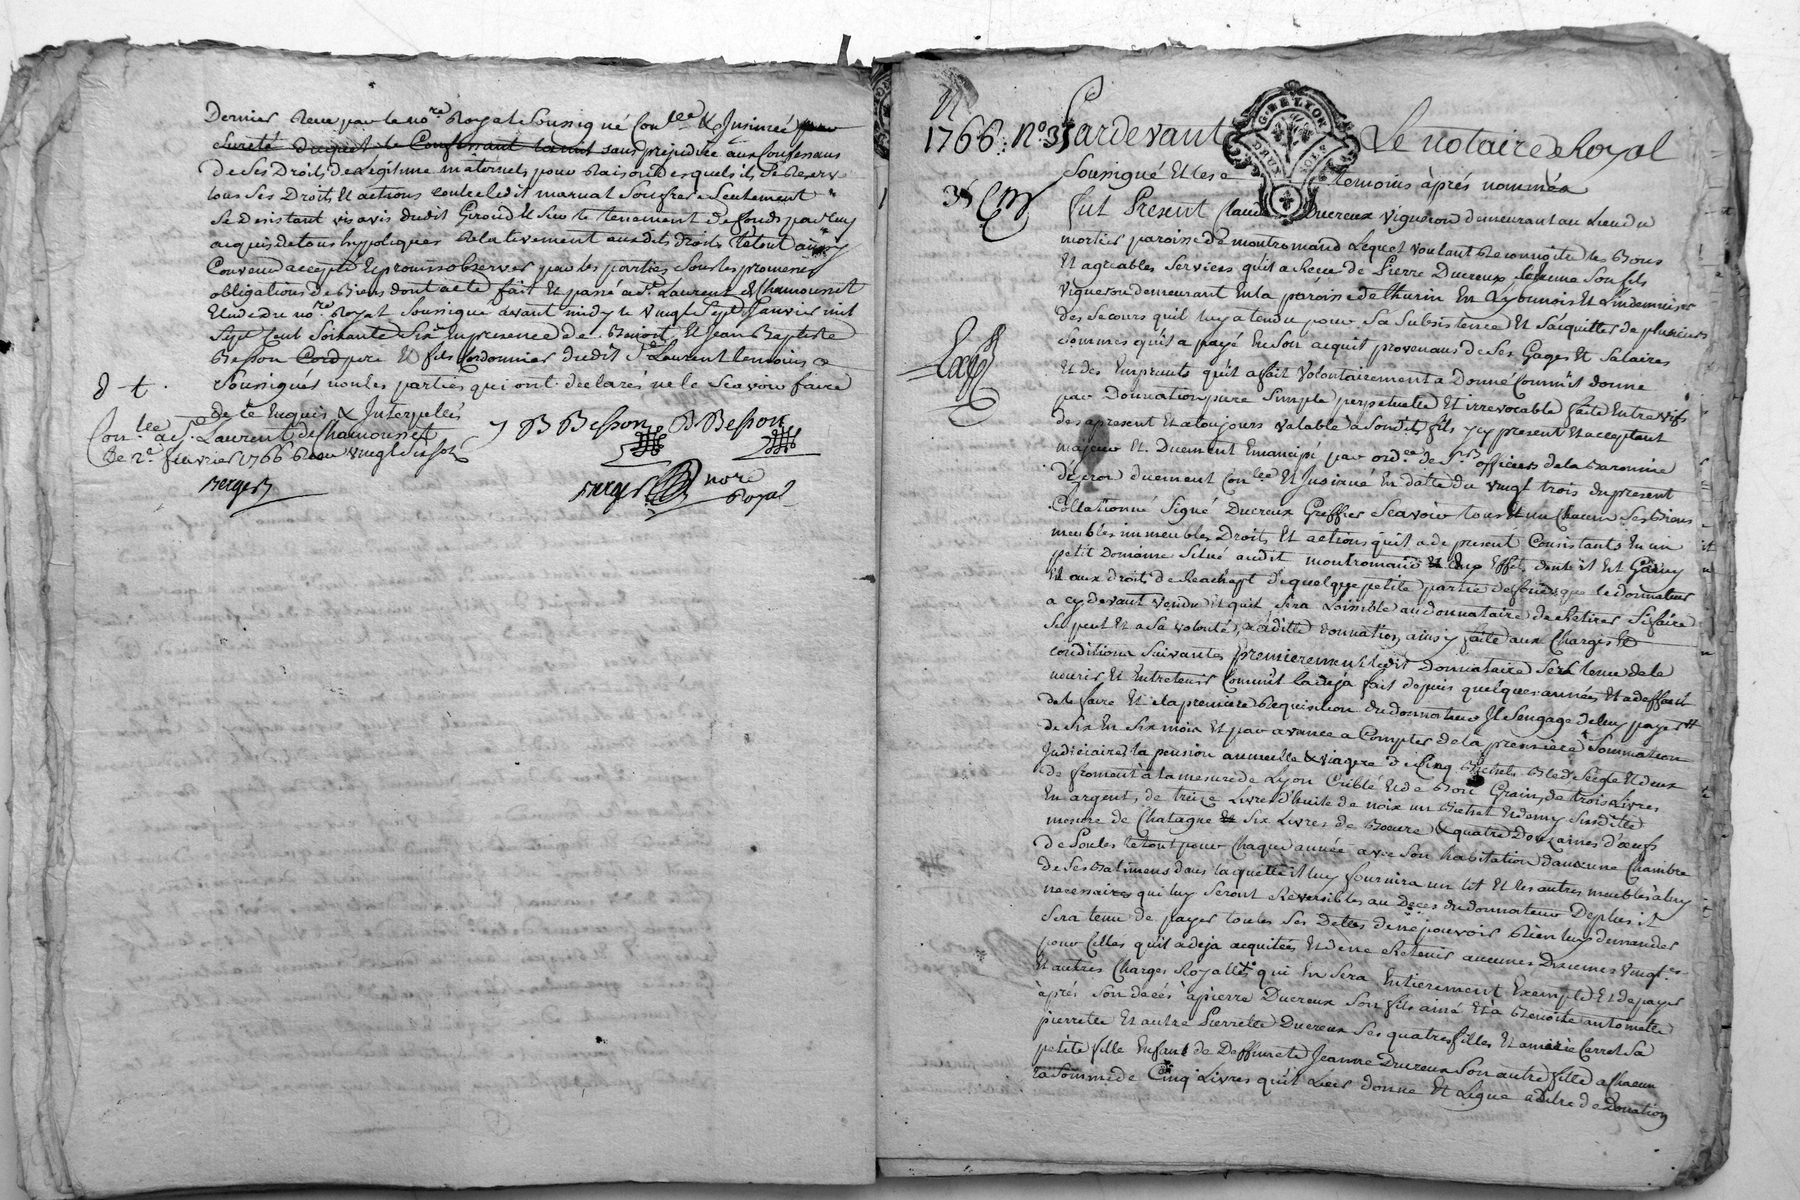 Dernier Receu par le no.re Royal Soussigné Con.lee & Insinué
Sureté duquel le Confessant sans prejudice aux Confessans
De Ses Droits de Legitime maternels pour Raison desquels ils Se Reserv
tous Ses Droits Et actions contre ledit Seulement
Se Desistant vis avis dudit Giroud Et Sur le tenement De fonds par luy
acquis de tous hypoteques Relativement auxdits droits Le tout ainsy
Convenu accepté Et promis observer par les parties Sous les promesses
obligations De Biens dont acte fait Et passé a S.t Laurent de Chamousset
Etude du no.re Royal Soussigné avant midy le vingt Sept Janvier mil
Sept Cent Soixante Six En presence de Benoist Et Jean Baptiste
Besson Cord pere Et fils Cordonnier dudit S.t Laurent temoins
Soussignés non les parties qui ont declarés ne le Scavoir faire
de ce Enquis & Interpellés
Con.lee a S.t Laurent de Chamousset
Ce 2.e fevrier 1766 Receu vingt six sols
Berger
B Besson B Besson
Berger nore
Royal
1766 : N.o 3
Pardevant Le notaire Royal
Soussigné Et les temoins après nommés
GREFFON
DEUX SOLS
fut Present Claude Ducreux vigneron demeurant au Lieu du
mortier paroisse de montromand Lequel voulant Reconnoitre les Bons
Et agreables Services qu'il a Receu de Pierre Ducreux Lejeune Son fils
vigneron demeurant En la paroisse de thurin En Lyonnois Et L'indemniser
des Secours qu'il luy a tendu pour Sa Subsistence Et S'acquitter de plusieurs
Sommes qu'il a payé En Son acquit provenans de Ses Gages Et Salaires
Et des Emprunts qu'il a fait Volontairement a Donné Comm'il donne
par Donnation pure Simple perpetuelle Et irrevocable faite Entre vifs
des apresent Et a toujours valable a Sondit fils y cy present Et acceptant
majeur Et Duement Emancipé par ord.ce de S.rs officiers de la Baronnie
duement Con.lee Et Insinué En datte du vingt trois du present
Collationné Signé Ducreux Greffier Scavoir tous Et un Chacun Ses Biens
meubles immeubles Droits Et actions qu'il a de present Consistants En un
petit Domaine Situé audit montromand Effets dont il Est Garny
Et aux droit de Reachapt de quelque petite partie de fonds que le donnateur
a cy devant vendu Et qu'il Sera Loisible au donnataire de Retirer Si faire
Se peut Et a Sa volonté, Laditte donnation ainsy faite aux Charges Et
conditions Suivantes premierement ledit Donnataire Sera tenu de le
nourir Et Entretenir Comm'il la deja fait depuis quelques années Et adeffaut
de le faire Et a la premiere Requisition du donnateur Il S'engage de luy payer
de Six En Six mois Et par avance a Compter de la premiere Sommation
Judiciaire la pension annuelle & viagere de Cinq Bichets Bled Seigle Et deux
de froment a la mesure de Lyon Criblé Et de Bon Grain, de trois Livres
En argent, de treize Livres d'huile de noix un Bichet Et demy Susditte
mesure de Chatagne Six Livres de Boeure & quatre Douzaines d'oeufs
de Poules le tout pour Chaque année avec Son habitation dans une Chambre
de Ses Batimens dans laquelle il luy fournira un lit Et les autres meubles a luy
necessaires qui luy Seront Reversibles au Deces du donnateur Deplus il
Sera tenu de payer toutes Ses Dettes de ne pouvoir Rien luy demander
pour Celles qu'il a deja acquitées Et de ne Retenir aucunes Dixmes Vingt.es
Et autres Charges Royalles qui En Sera Entierement Exempt Et de payer
après Son decés à pierre Ducreux Son fils ainé Et à Benoite antoinette
pierrette Et autre Pierrette Ducreux Ses quatres filles Et a marie Carret Sa
petite fille Enfant de Deffunte Jeanne Ducreux Son autre fille a Chacun
la Somme de Cinq Livres qu'il Leur donne Et Legue a titre de Donation